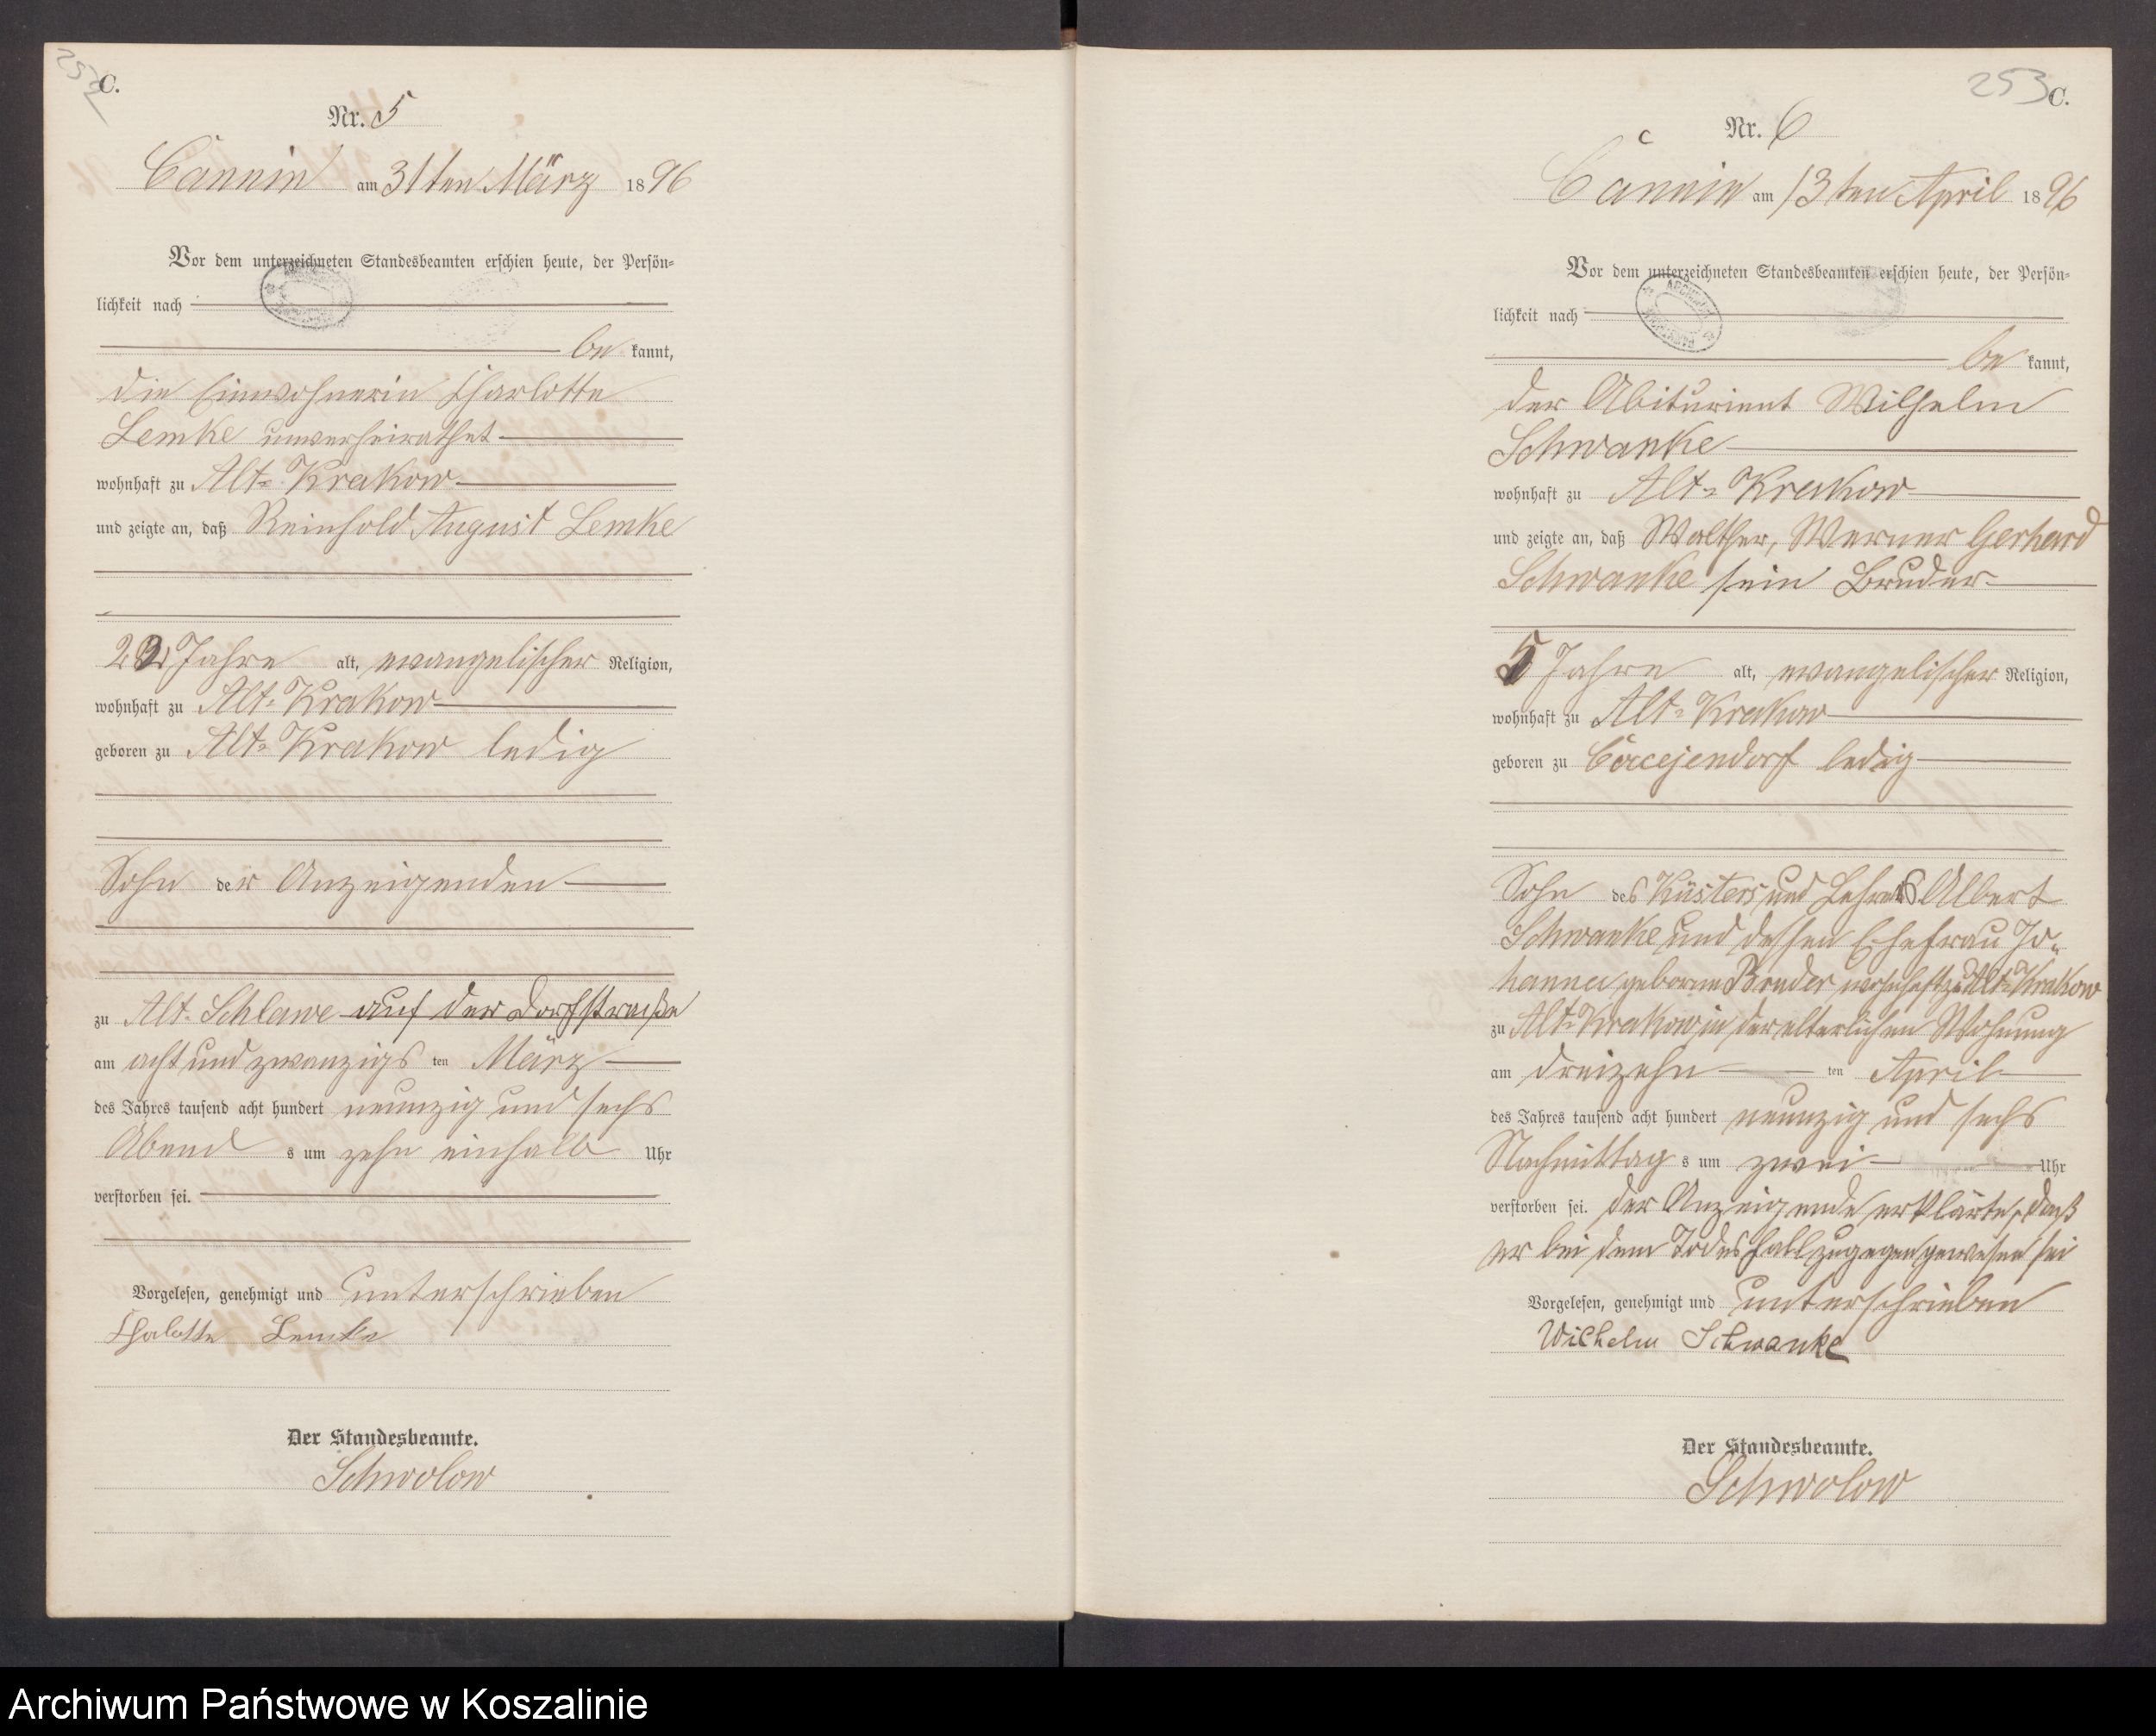 252
C.
Nr. 5
Cannin am 31ten März 1896
Vor dem unterzeichneten Standesbeamten erschien heute, der Persön-
lichkeit nach
be kannt,
die Einwohnerin Charlotte
Lemke unverheirathet
wohnhaft zu Alt-Krakow
und zeigte an, daß Reinhold August Lemke
22 Jahre alt, evangelischer Religion,
wohnhaft zu Alt-Krakow
geboren zu Alt-Krakow ledig
Sohn der Anzeigenden
zu Alt-Schlawe auf der Dorfstraße
am acht und zwanzigs ten März
des Jahres tausend acht hundert neunzig und sechs
Abend s um zehn einhalb Uhr
verstorben sei.
Vorgelesen, genehmigt und unterschrieben
Chalotte Lemke
Der Standesbeamte.
Schwolow
253
C.
Nr. 6
Cannin am 13ten April 1896
Vor dem unterzeichneten Standesbeamten erschien heute, der Persön-
lichkeit nach
be kannt,
der Abiturient Wilhelm
Schwanke
wohnhaft zu Alt-Krakow
und zeigte an, daß Walther, Werner Gerhard
Schwanke sein Bruder
5 Jahre alt, evangelischer Religion,
wohnhaft zu Alt-Krakow
geboren zu Coccejendorf ledig
Sohn des Küsters und Lehrers Albert
Schwanke und dessen Ehefrau Jo-
hanna geborne Bruder wohnhaft zu Alt-Krakow
zu Alt-Krakow in der elterlichen Wohnung
am dreizehn ten April
des Jahres tausend acht hundert neunzig und sechs
Nachmittag s um zwei Uhr
verstorben sei. der Anzeigende erklärte, daß
er bei dem Todesfall zugegen gewesen sei
Vorgelesen, genehmigt und unterschrieben
Wilhelm Schwanke
Der Standesbeamte.
Schwolow
Archiwum Państwowe w Koszalinie